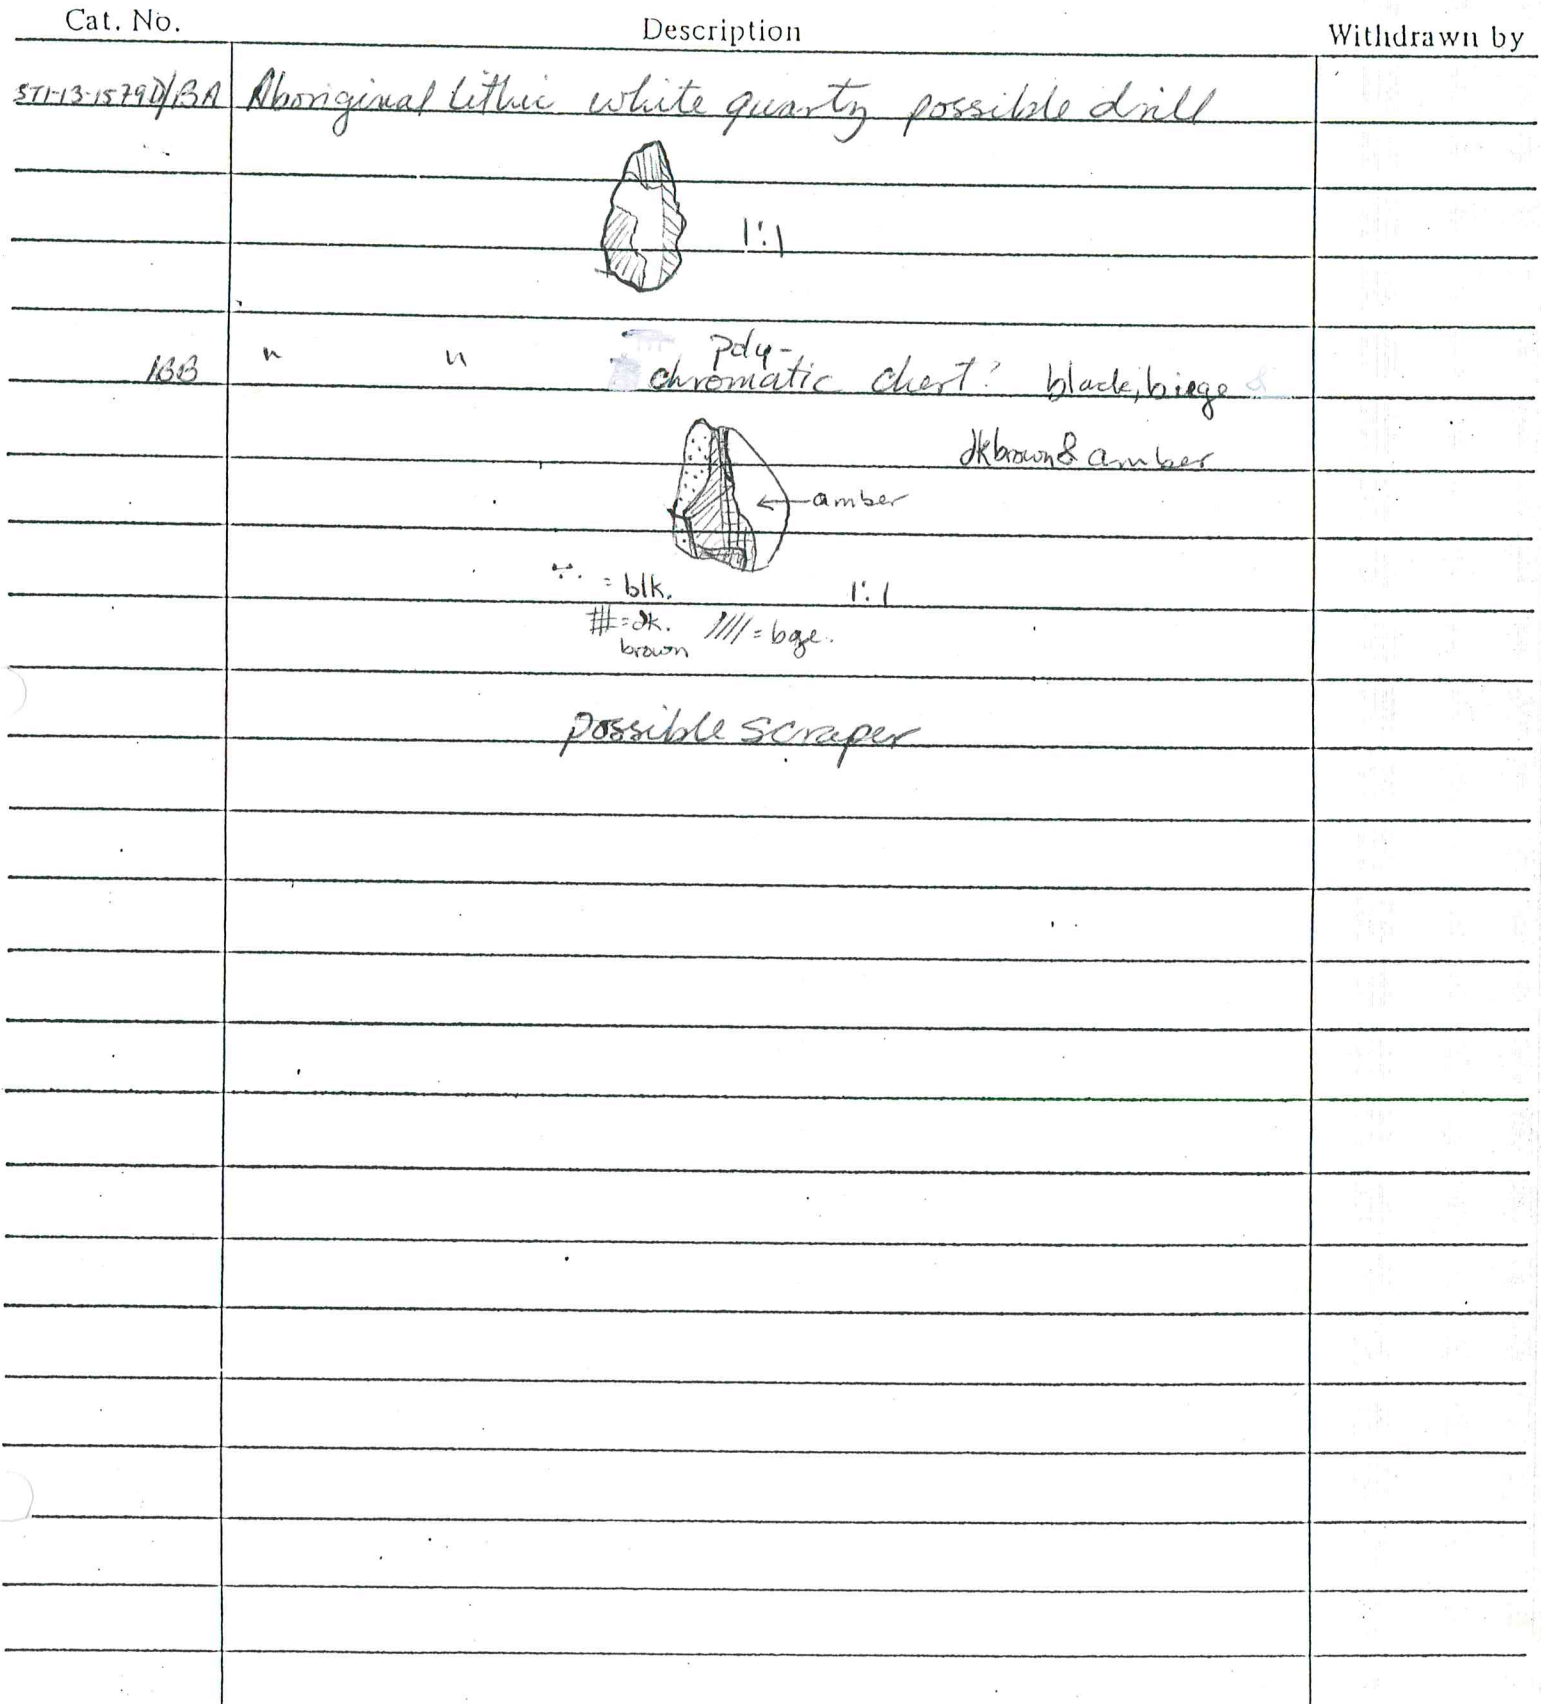 Cat. No. Description Withdrawn by
ST1-13-1579D/13A Aboriginal lithic white quartz possible drill
1:1
13B " " poly-
chromatic chert? black, biege
dk brown & amber
← amber
= blk. 1:1
# = dk. //// = bge.
brown
possible scraper